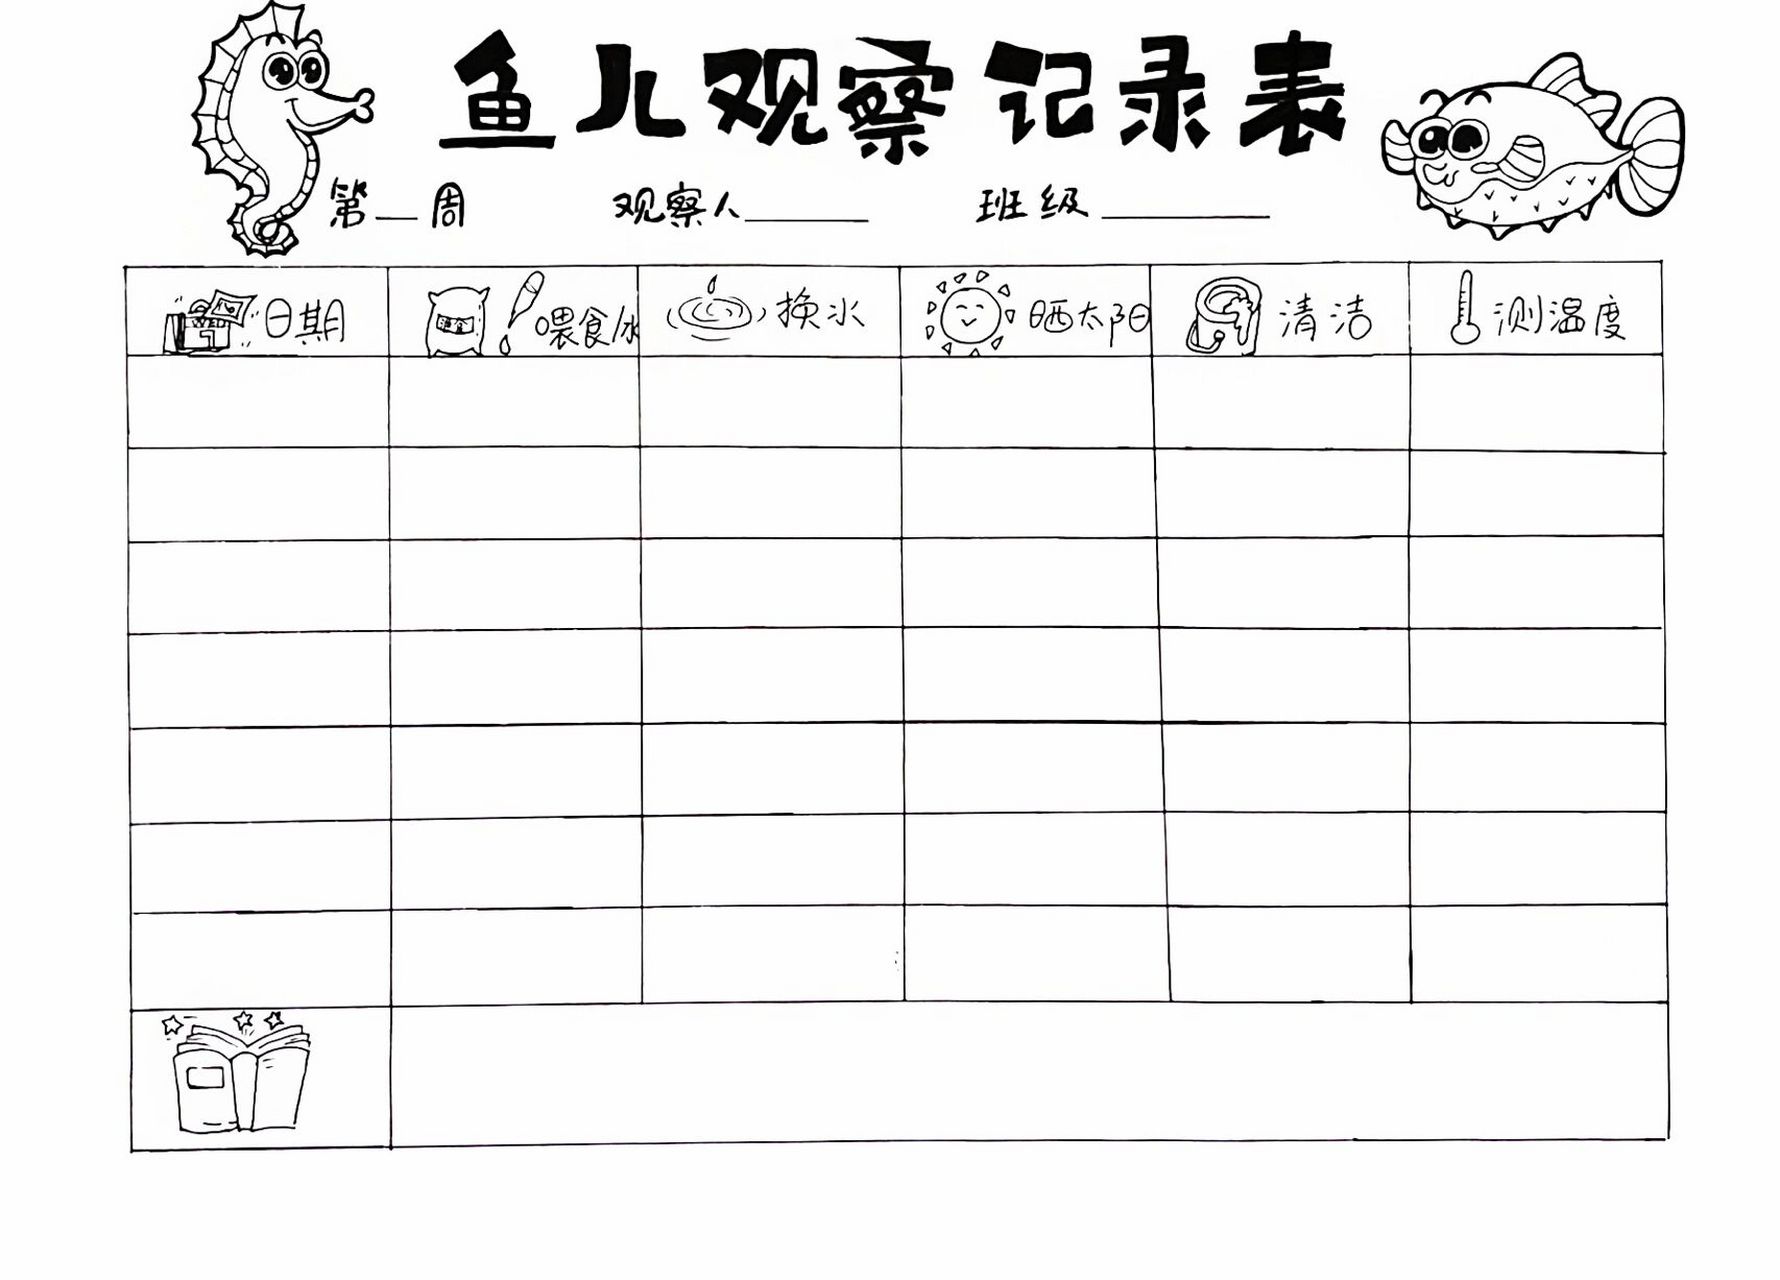 鱼儿观察记录表
第__周 观察人______ 班级________
日期 喂食/水 换水 晒太阳 清洁 测温度